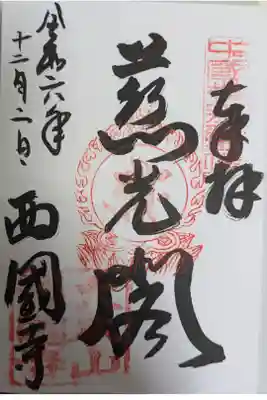 奉拝
慈光閣
令和六年
十二月一日
西國寺